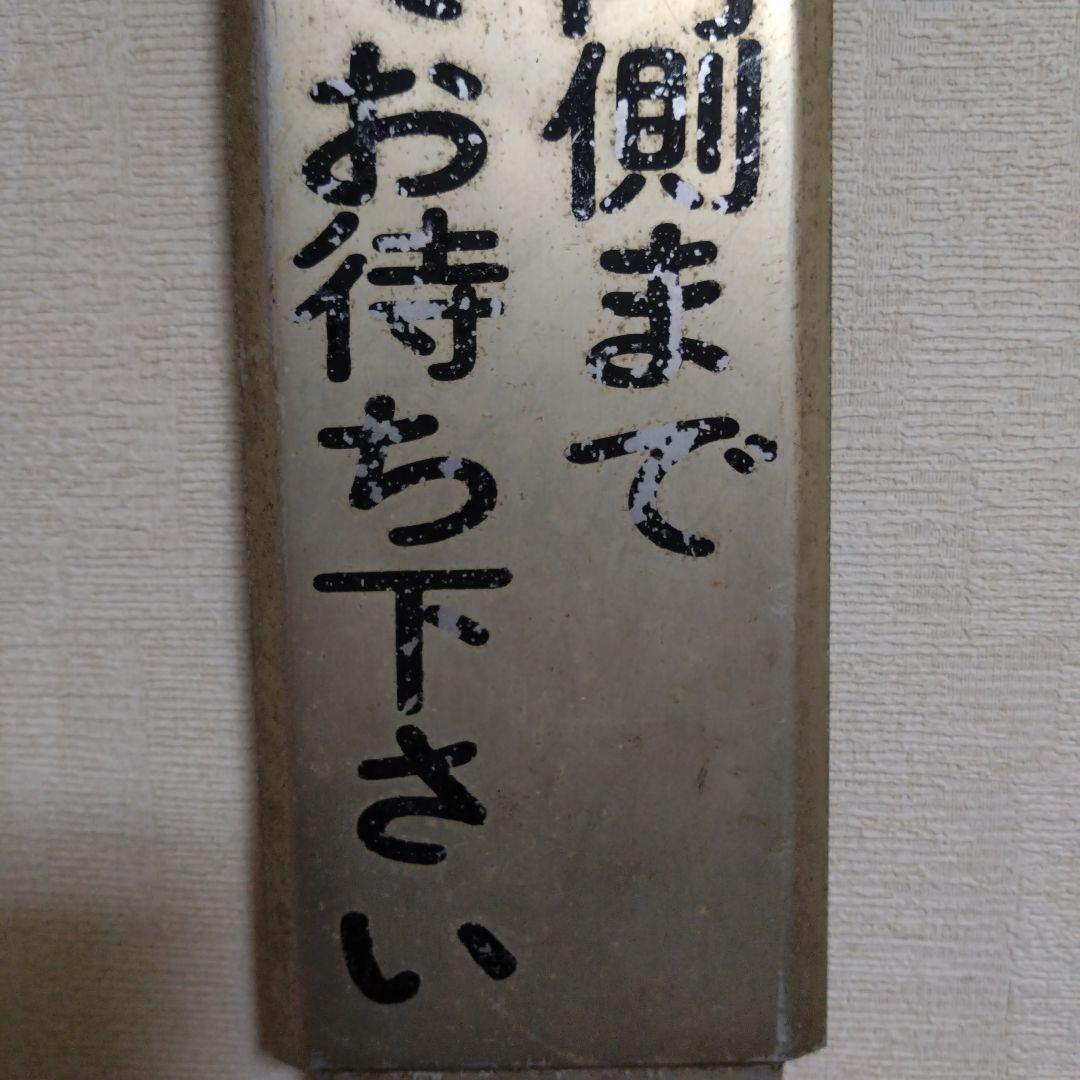 側まで
お待ち下さい